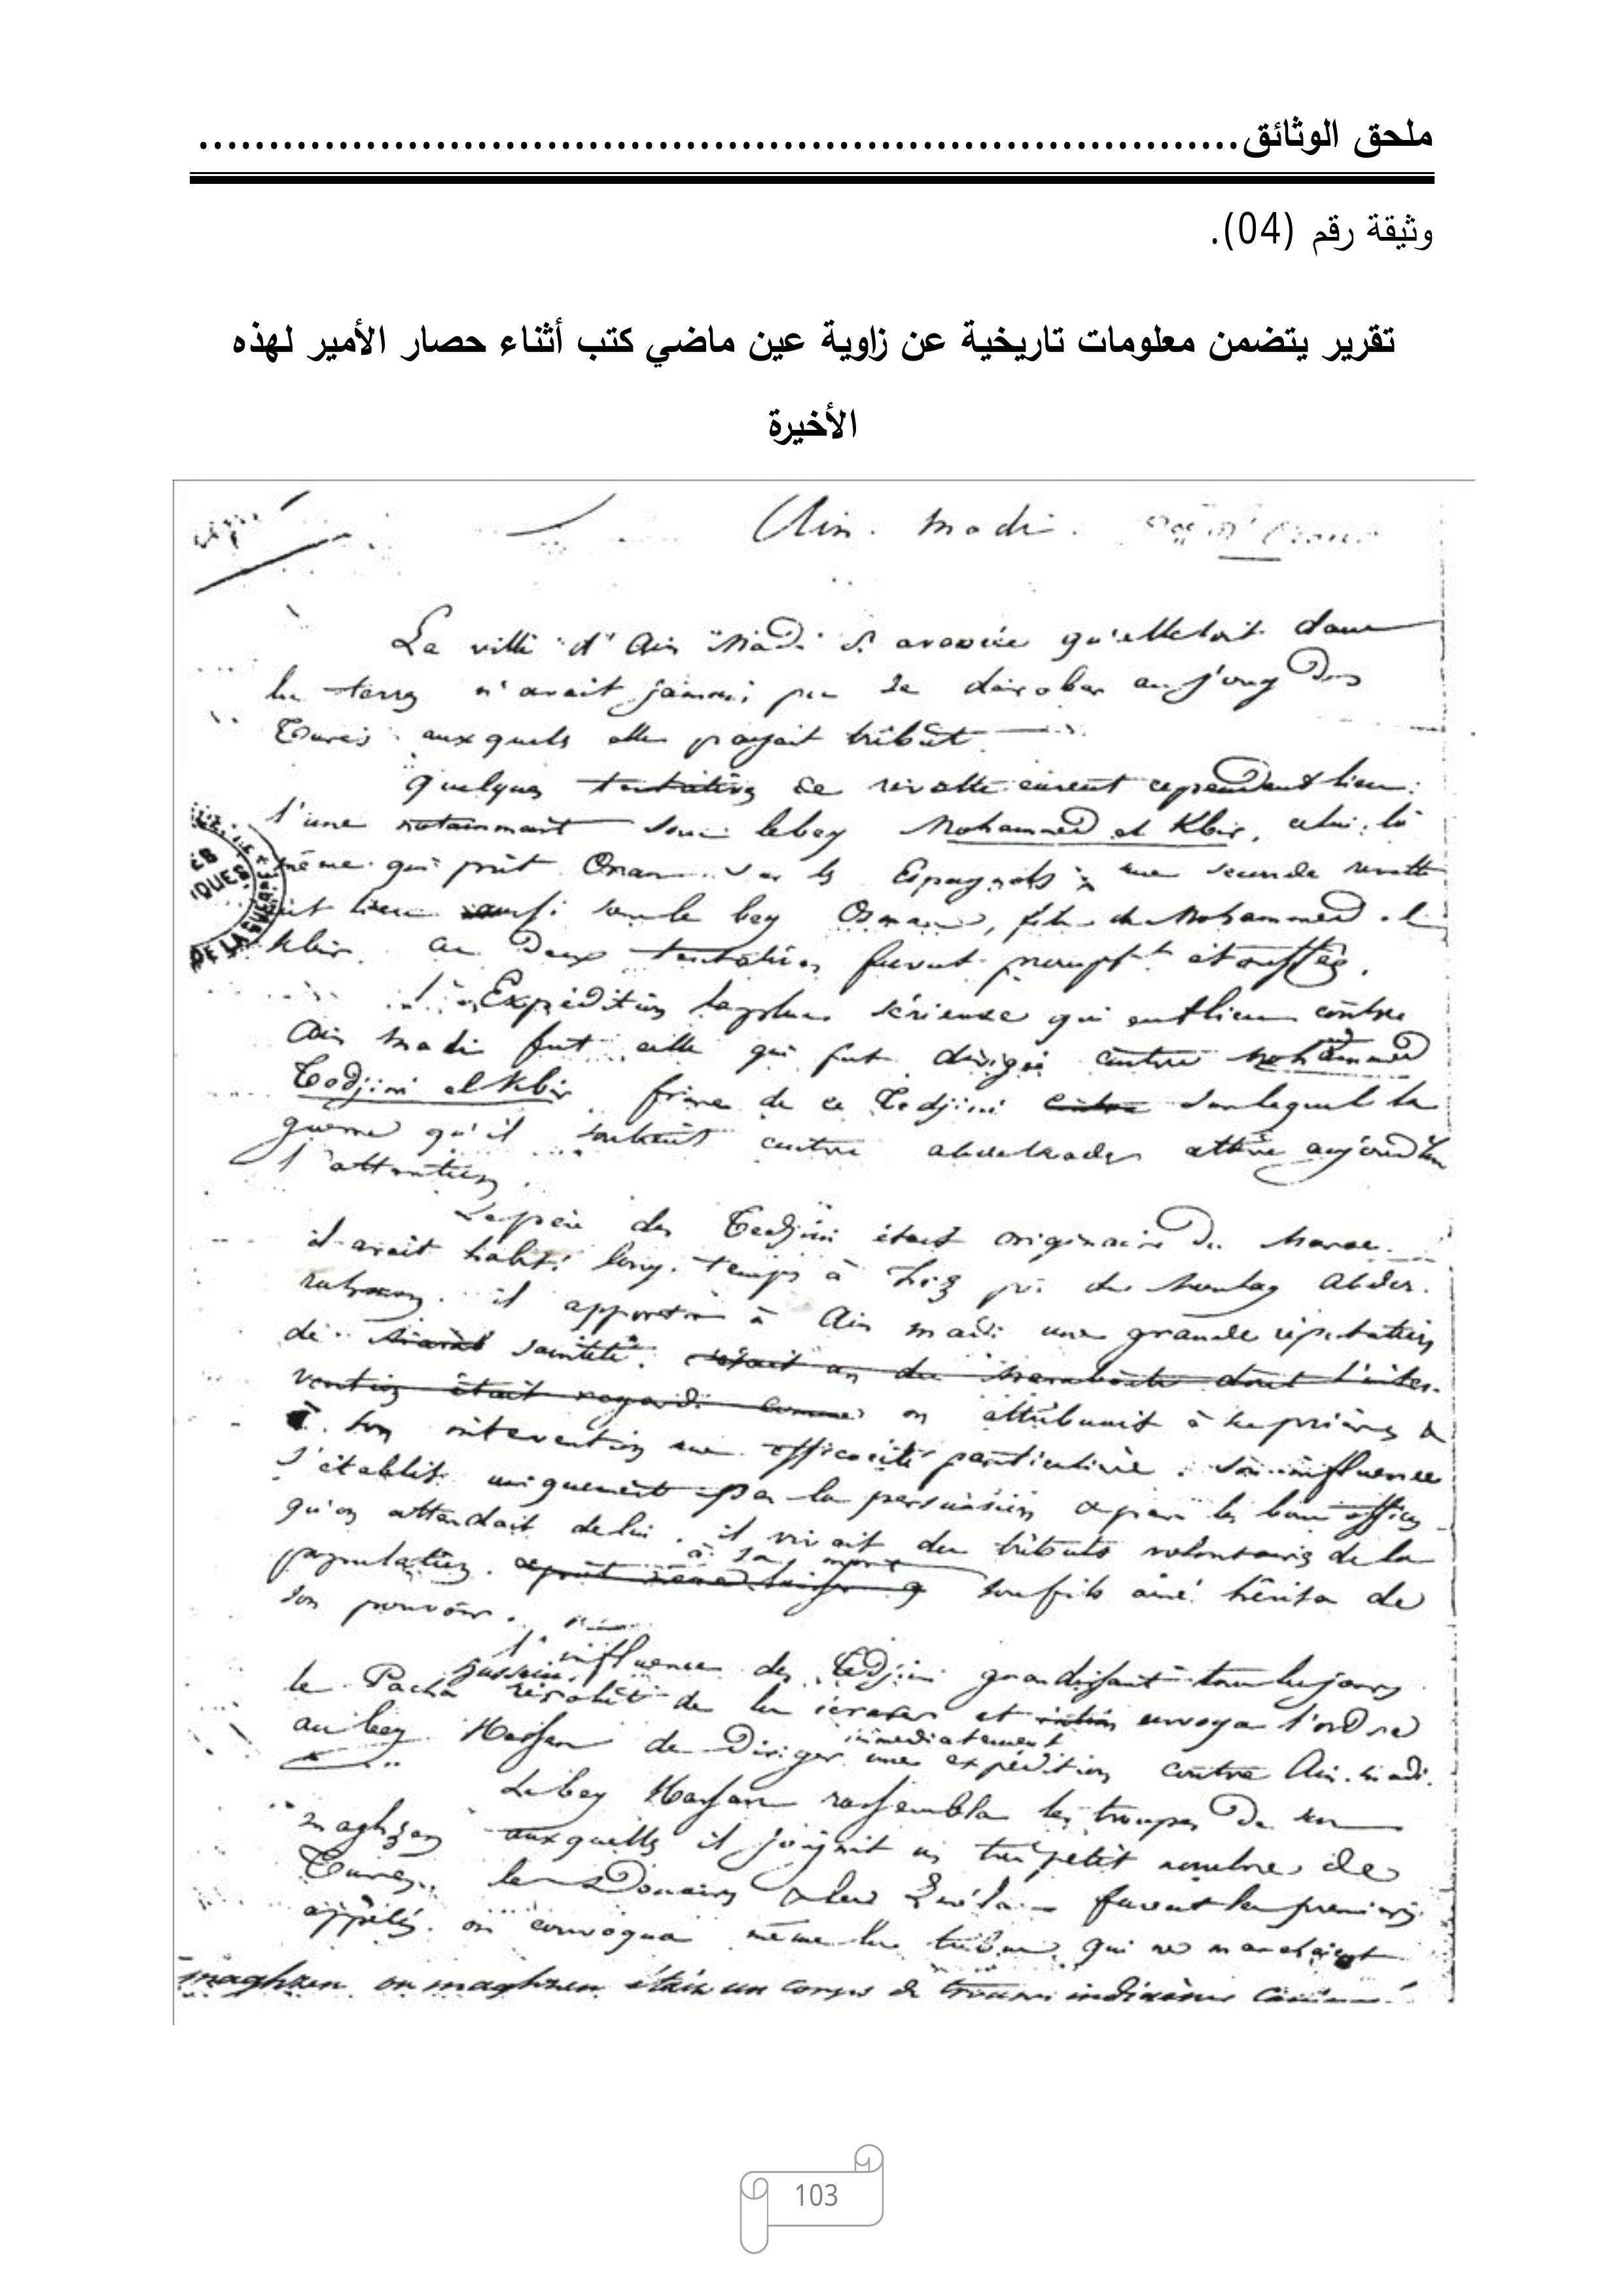 ملحق الوثائق..........................................................................
وثيقة رقم (04).
تقرير يتضمن معلومات تاريخية عن زاوية عين ماضي كتب أثناء حصار الأمير لهذه
الأخيرة
Ain. Madi.
La ville d'Ain Madi si avancée qu'elle soit dans
les terres n'avait jamais pu se dérober au joug des
Turcs auxquels elle payait tribut.
quelques tentatives de révolte eurent cependant lieu:
l'une notamment sous le bey Mohammed el Kbir, celui-là
même qui prit Oran sur les Espagnols; une seconde révolte
eut lieu aussi sous le bey Osman, fils de Mohammed el
Kbir. ces deux tentatives furent prompt.t étouffées.
L'Expédition la plus sérieuse qui eut lieu contre
Ain Madi fut celle qui fut dirigée contre Mohammed
Tedjini el Kbir frère de ce Tedjini sur lequel la
guerre qu'il soutient contre abdelkader attire aujourd'hui
l'attention.
Le père des Tedjini était originaire du Maroc.
il avait habité long-temps à Fez près du Abder.
rahman. il apporta à Ain madi une grande réputation
de sainteté. c'était un des marabouts dont l'inter-
vention était regardée comme on attribuait à ses prières &
à son intervention une efficacité particulière. son influence
s'établit uniquement par la persuasion & par les bons offices
qu'on attendait de lui. il vivait des tributs volontaires de la
population. à sa mort son fils aîné hérita de
son pouvoir.
l'influence des Tedjini grandissant tous les jours
le Pacha hussein résolut de les écraser et envoya l'ordre
au bey Hassan de diriger immédiatement une expédition contre Ain-madi.
Le bey Hassan rassembla les troupes de son
maghzen auxquelles il joignit un très petit nombre de
Turcs. les Douairs & les Zméla furent les premiers
appelés. on convoqua même les tribus qui ne marchaient
maghzen ou maghzen était un corps de troupes indigènes
DE LA GUERRE
103